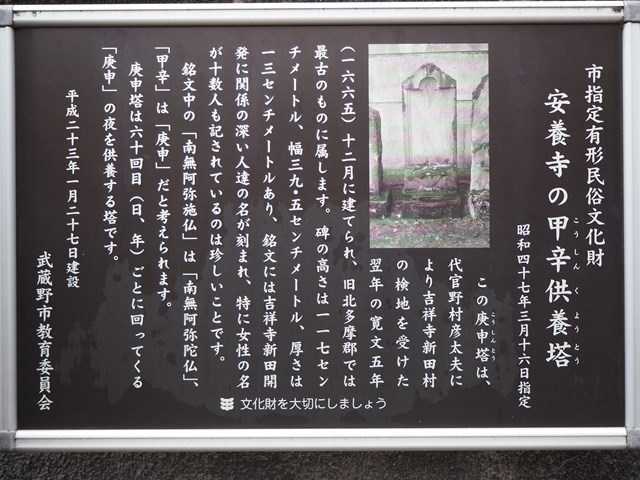 市指定有形民俗文化財
安養寺の甲辛供養塔
こうしんくようとう
昭和四十七年三月十六日指定
この庚申塔は、
こうしんとう
代官野村彦太夫に
より吉祥寺新田村
の検地を受けた
翌年の寛文五年
(一六六五)十二月に建てられ、旧北多摩郡では
最古のものに属します。碑の高さは一一七セン
チメートル、幅三九・五センチメートル、厚さは
一三センチメートルあり、銘文には吉祥寺新田開
発に関係の深い人達の名が刻まれ、特に女性の名
が十数人も記されているのは珍しいことです。
銘文中の「南無阿弥施仏」は「南無阿弥陀仏」、
「甲辛」は「庚申」だと考えられます。
庚申塔は六十回目(日、年)ごとに回ってくる
「庚申」の夜を供養する塔です。
平成二十三年一月二十七日建設
武蔵野市教育委員会
文化財を大切にしましょう